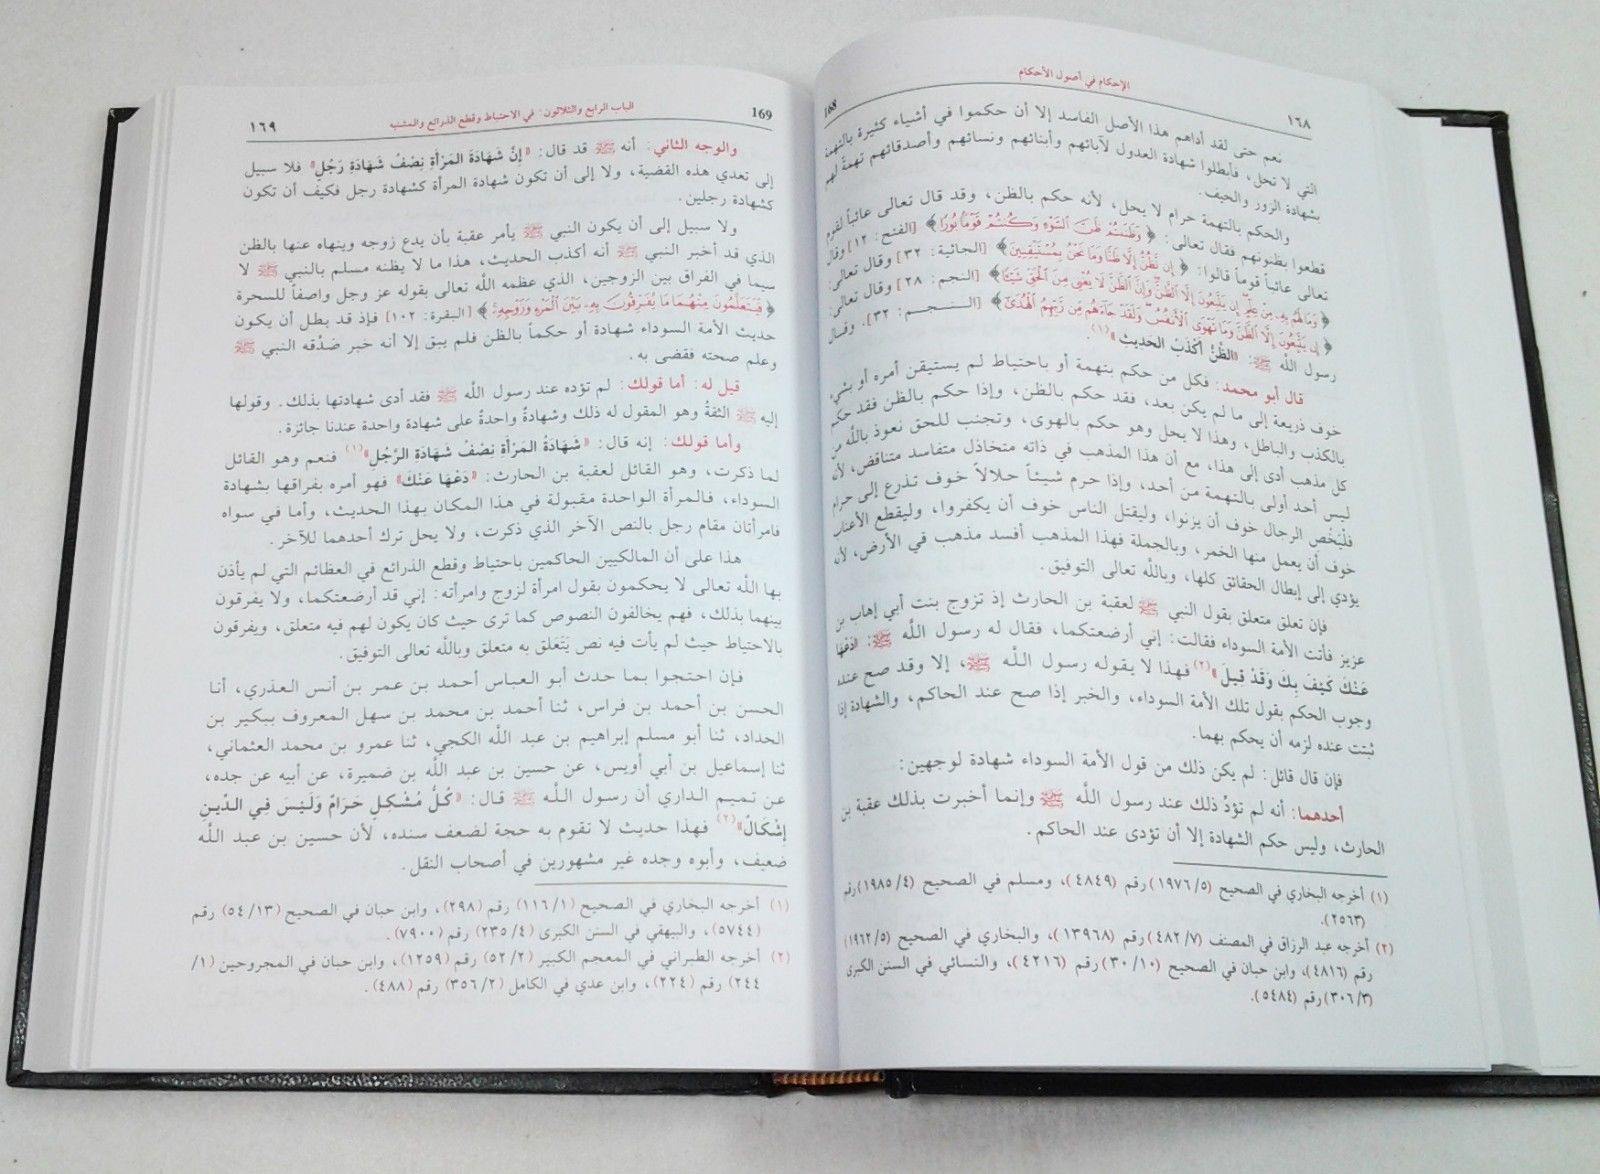 ١٦٨
الإحكام في أصول الأحكام
168
نعم حتى لقد أداهم هذا الأصل الفاسد إلا أن حكموا في أشياء كثيرة بالتهمة
التي لا تحل، فأبطلوا شهادة العدول لآبائهم وأبنائهم ونسائهم وأصدقائهم تهمةً لهم
بشهادة الزور والحيف.
والحكم بالتهمة حرام لا يحل، لأنه حكم بالظن، وقد قال تعالى عائباً لقوم
قطعوا بظنونهم فقال تعالى: ﴿وَظَنَنتُمْ ظَنَّ ٱلسَّوْءِ وَكُنتُمْ قَوْمًا بُورًا﴾ [الفتح: ١٢] وقال
تعالى عائباً قوماً قالوا: ﴿إِن نَّظُنُّ إِلَّا ظَنًّا وَمَا نَحْنُ بِمُسْتَيْقِنِينَ﴾ [الجاثية: ٣٢] وقال تعالى:
﴿وَمَا لَهُم بِهِۦ مِنْ عِلْمٍ إِن يَتَّبِعُونَ إِلَّا ٱلظَّنَّ وَإِنَّ ٱلظَّنَّ لَا يُغْنِى مِنَ ٱلْحَقِّ شَيْـًٔا﴾ [النجم: ٢٨] وقال تعالى:
﴿إِن يَتَّبِعُونَ إِلَّا ٱلظَّنَّ وَمَا تَهْوَى ٱلْأَنفُسُ وَلَقَدْ جَآءَهُم مِّن رَّبِّهِمُ ٱلْهُدَىٰٓ﴾ [النجم: ٣٢]. وقال
رسول اللّه ﷺ: «الظَّنُّ أَكْذَبُ الحَدِيثِ»(١).
قال أبو محمد: فكل من حكم بتهمة أو باحتياط لم يستيقن أمره أو بشيء
خوف ذريعة إلى ما لم يكن بعد، فقد حكم بالظن، وإذا حكم بالظن فقد حكم
بالكذب والباطل، وهذا لا يحل وهو حكم بالهوى، وتجنب للحق نعوذ باللّه من
كل مذهب أدى إلى هذا، مع أن هذا المذهب في ذاته متخاذل متفاسد متناقض، لأن
ليس أحد أولى بالتهمة من أحد، وإذا حرم شيئاً حلالاً خوف تذرع إلى حرام
فلْيَخْصِ الرجال خوف أن يزنوا، وليقتل الناس خوف أن يكفروا، وليقطع الأعناب
خوف أن يعمل منها الخمر، وبالجملة فهذا المذهب أفسد مذهب في الأرض، لأن
يؤدي إلى إبطال الحقائق كلها، وباللّه تعالى التوفيق.
فإن تعلق متعلق بقول النبي ﷺ لعقبة بن الحارث إذ تزوج بنت أبي إهاب بن
عزيز فأتت الأمة السوداء فقالت: إني أرضعتكما، فقال له رسول اللّه ﷺ: «دَعْهَا
عَنْكَ كَيْفَ بِكَ وَقَدْ قِيلَ»(٢) فهذا لا يقوله رسول اللّه ﷺ، إلا وقد صح عنده
وجوب الحكم بقول تلك الأمة السوداء، والخبر إذا صح عند الحاكم، والشهادة إذا
ثبتت عنده لزمه أن يحكم بهما.
فإن قال قائل: لم يكن ذلك من قول الأمة السوداء شهادة لوجهين:
أحدهما: أنه لم تؤدِّ ذلك عند رسول اللّه ﷺ وإنما أخبرت بذلك عقبة بن
الحارث، وليس حكم الشهادة إلا أن تؤدى عند الحاكم.
(١) أخرجه البخاري في الصحيح (١٩٧٦/٥) رقم (٤٨٤٩)، ومسلم في الصحيح (١٩٨٥/٤) رقم
(٢٥٦٣).
(٢) أخرجه عبد الرزاق في المصنف (٤٨٢/٧) رقم (١٣٩٦٨)، والبخاري في الصحيح (١٩٦٢/٥)
رقم (٤٨١٦)، وابن حبان في الصحيح (٣٠/١٠) رقم (٤٢١٦)، والنسائي في السنن الكبرى
(٣٠٦/٣) رقم (٥٤٨٤).
169
الباب الرابع والثلاثون: في الاحتياط وقطع الذرائع والمشتبه
١٦٩
والوجه الثاني: أنه ﷺ قد قال: «إِنَّ شَهَادَةَ المَرْأَةِ نِصْفُ شَهَادَةِ رَجُلٍ» فلا سبيل
إلى تعدي هذه القضية، ولا إلى أن تكون شهادة المرأة كشهادة رجل فكيف أن تكون
كشهادة رجلين.
ولا سبيل إلى أن يكون النبي ﷺ يأمر عقبة بأن يدع زوجه وينهاه عنها بالظن
الذي قد أخبر النبي ﷺ أنه أكذب الحديث، هذا ما لا يظنه مسلم بالنبي ﷺ لا
سيما في الفراق بين الزوجين، الذي عظمه اللّه تعالى بقوله عز وجل واصفاً للسحرة
﴿فَيَتَعَلَّمُونَ مِنْهُمَا مَا يُفَرِّقُونَ بِهِۦ بَيْنَ ٱلْمَرْءِ وَزَوْجِهِۦ﴾ [البقرة: ١٠٢] فإذ قد بطل أن يكون
حديث الأمة السوداء شهادة أو حكماً بالظن فلم يبق إلا أنه خبر صَدَّقه النبي ﷺ
وعلم صحته فقضى به.
قيل له: أما قولك: لم تؤده عند رسول اللّه ﷺ فقد أدى شهادتها بذلك. وقولها
إليه ﷺ الثقةُ وهو المقول له ذلك وشهادةُ واحدةٌ على شهادة واحدة عندنا جائزة.
وأما قولك: إنه قال: «شَهَادَةُ المَرْأَةِ نِصْفُ شَهَادَةِ الرَّجُلِ»(١) فنعم وهو القائل
لما ذكرت، وهو القائل لعقبة بن الحارث: «دَعْهَا عَنْكَ» فهو أمره بفراقها بشهادة
السوداء، فالمرأة الواحدة مقبولة في هذا المكان بهذا الحديث، وأما في سواه
فامرأتان مقام رجل بالنص الآخر الذي ذكرت، ولا يحل ترك أحدهما للآخر.
هذا على أن المالكيين الحاكمين باحتياط وقطع الذرائع في العظائم التي لم يأذن
بها اللّه تعالى لا يحكمون بقول امرأة لزوج وامرأته: إني قد أرضعتكما، ولا يفرقون
بينهما بذلك، فهم يخالفون النصوص كما ترى حيث كان يكون لهم فيه متعلق، ويفرقون
بالاحتياط حيث لم يأت فيه نص يَتَعَلق به متعلق وباللّه تعالى التوفيق.
فإن احتجوا بما حدث أبو العباس أحمد بن عمر بن أنس العذري، أنا
الحسن بن أحمد بن فراس، ثنا أحمد بن محمد بن سهل المعروف ببكير بن
الحداد، ثنا أبو مسلم إبراهيم بن عبد اللّه الكجي، ثنا عمرو بن محمد العثماني،
ثنا إسماعيل بن أبي أويس، عن حسين بن عبد اللّه بن ضميرة، عن أبيه عن جده،
عن تميم الداري أن رسول اللّه ﷺ قال: «كُلُّ مُشْكِلٍ حَرَامٌ وَلَيْسَ فِي الدِّينِ
إِشْكَالٌ»(٢) فهذا حديث لا تقوم به حجة لضعف سنده، لأن حسين بن عبد اللّه
ضعيف، وأبوه وجده غير مشهورين في أصحاب النقل.
(١) أخرجه البخاري في الصحيح (١١٦/١) رقم (٢٩٨)، وابن حبان في الصحيح (٥٤/١٣) رقم
(٥٧٤٤)، والبيهقي في السنن الكبرى (٢٣٥/٤) رقم (٧٩٠٠).
(٢) أخرجه الطبراني في المعجم الكبير (٥٢/٢) رقم (١٢٥٩)، وابن حبان في المجروحين (١/
٢٤٤) رقم (٢٢٤)، وابن عدي في الكامل (٣٥٦/٢) رقم (٤٨٨).